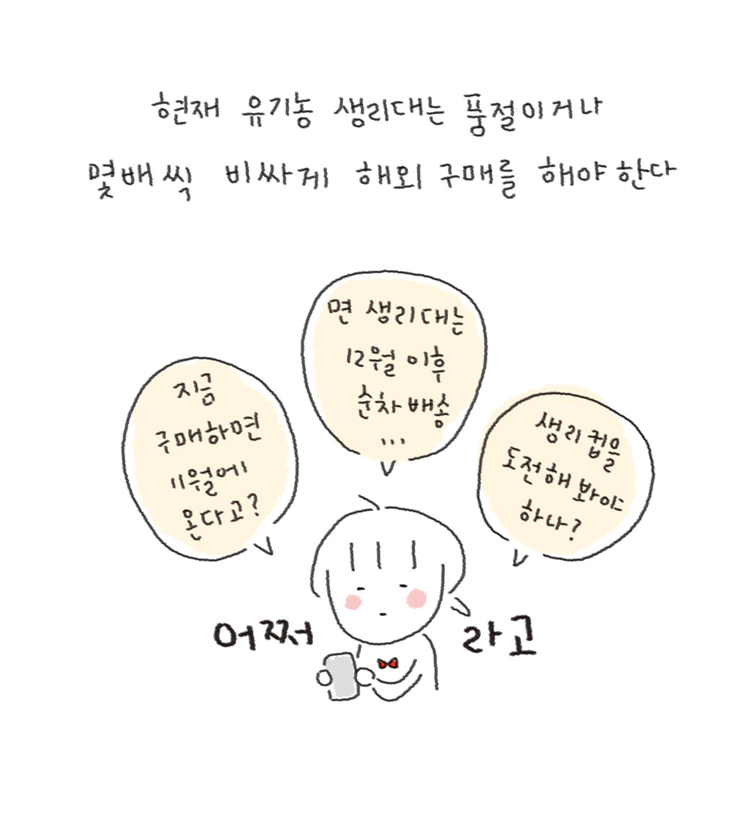 현재 유기농 생리대는 품절이거나
몇배씩 비싸게 해외 구매를 해야 한다
면 생리대는
12월 이후
순차 배송
...
지금
구매하면
11월에
온다고?
생리컵을
도전해 봐야
하나?
어쩌 라고